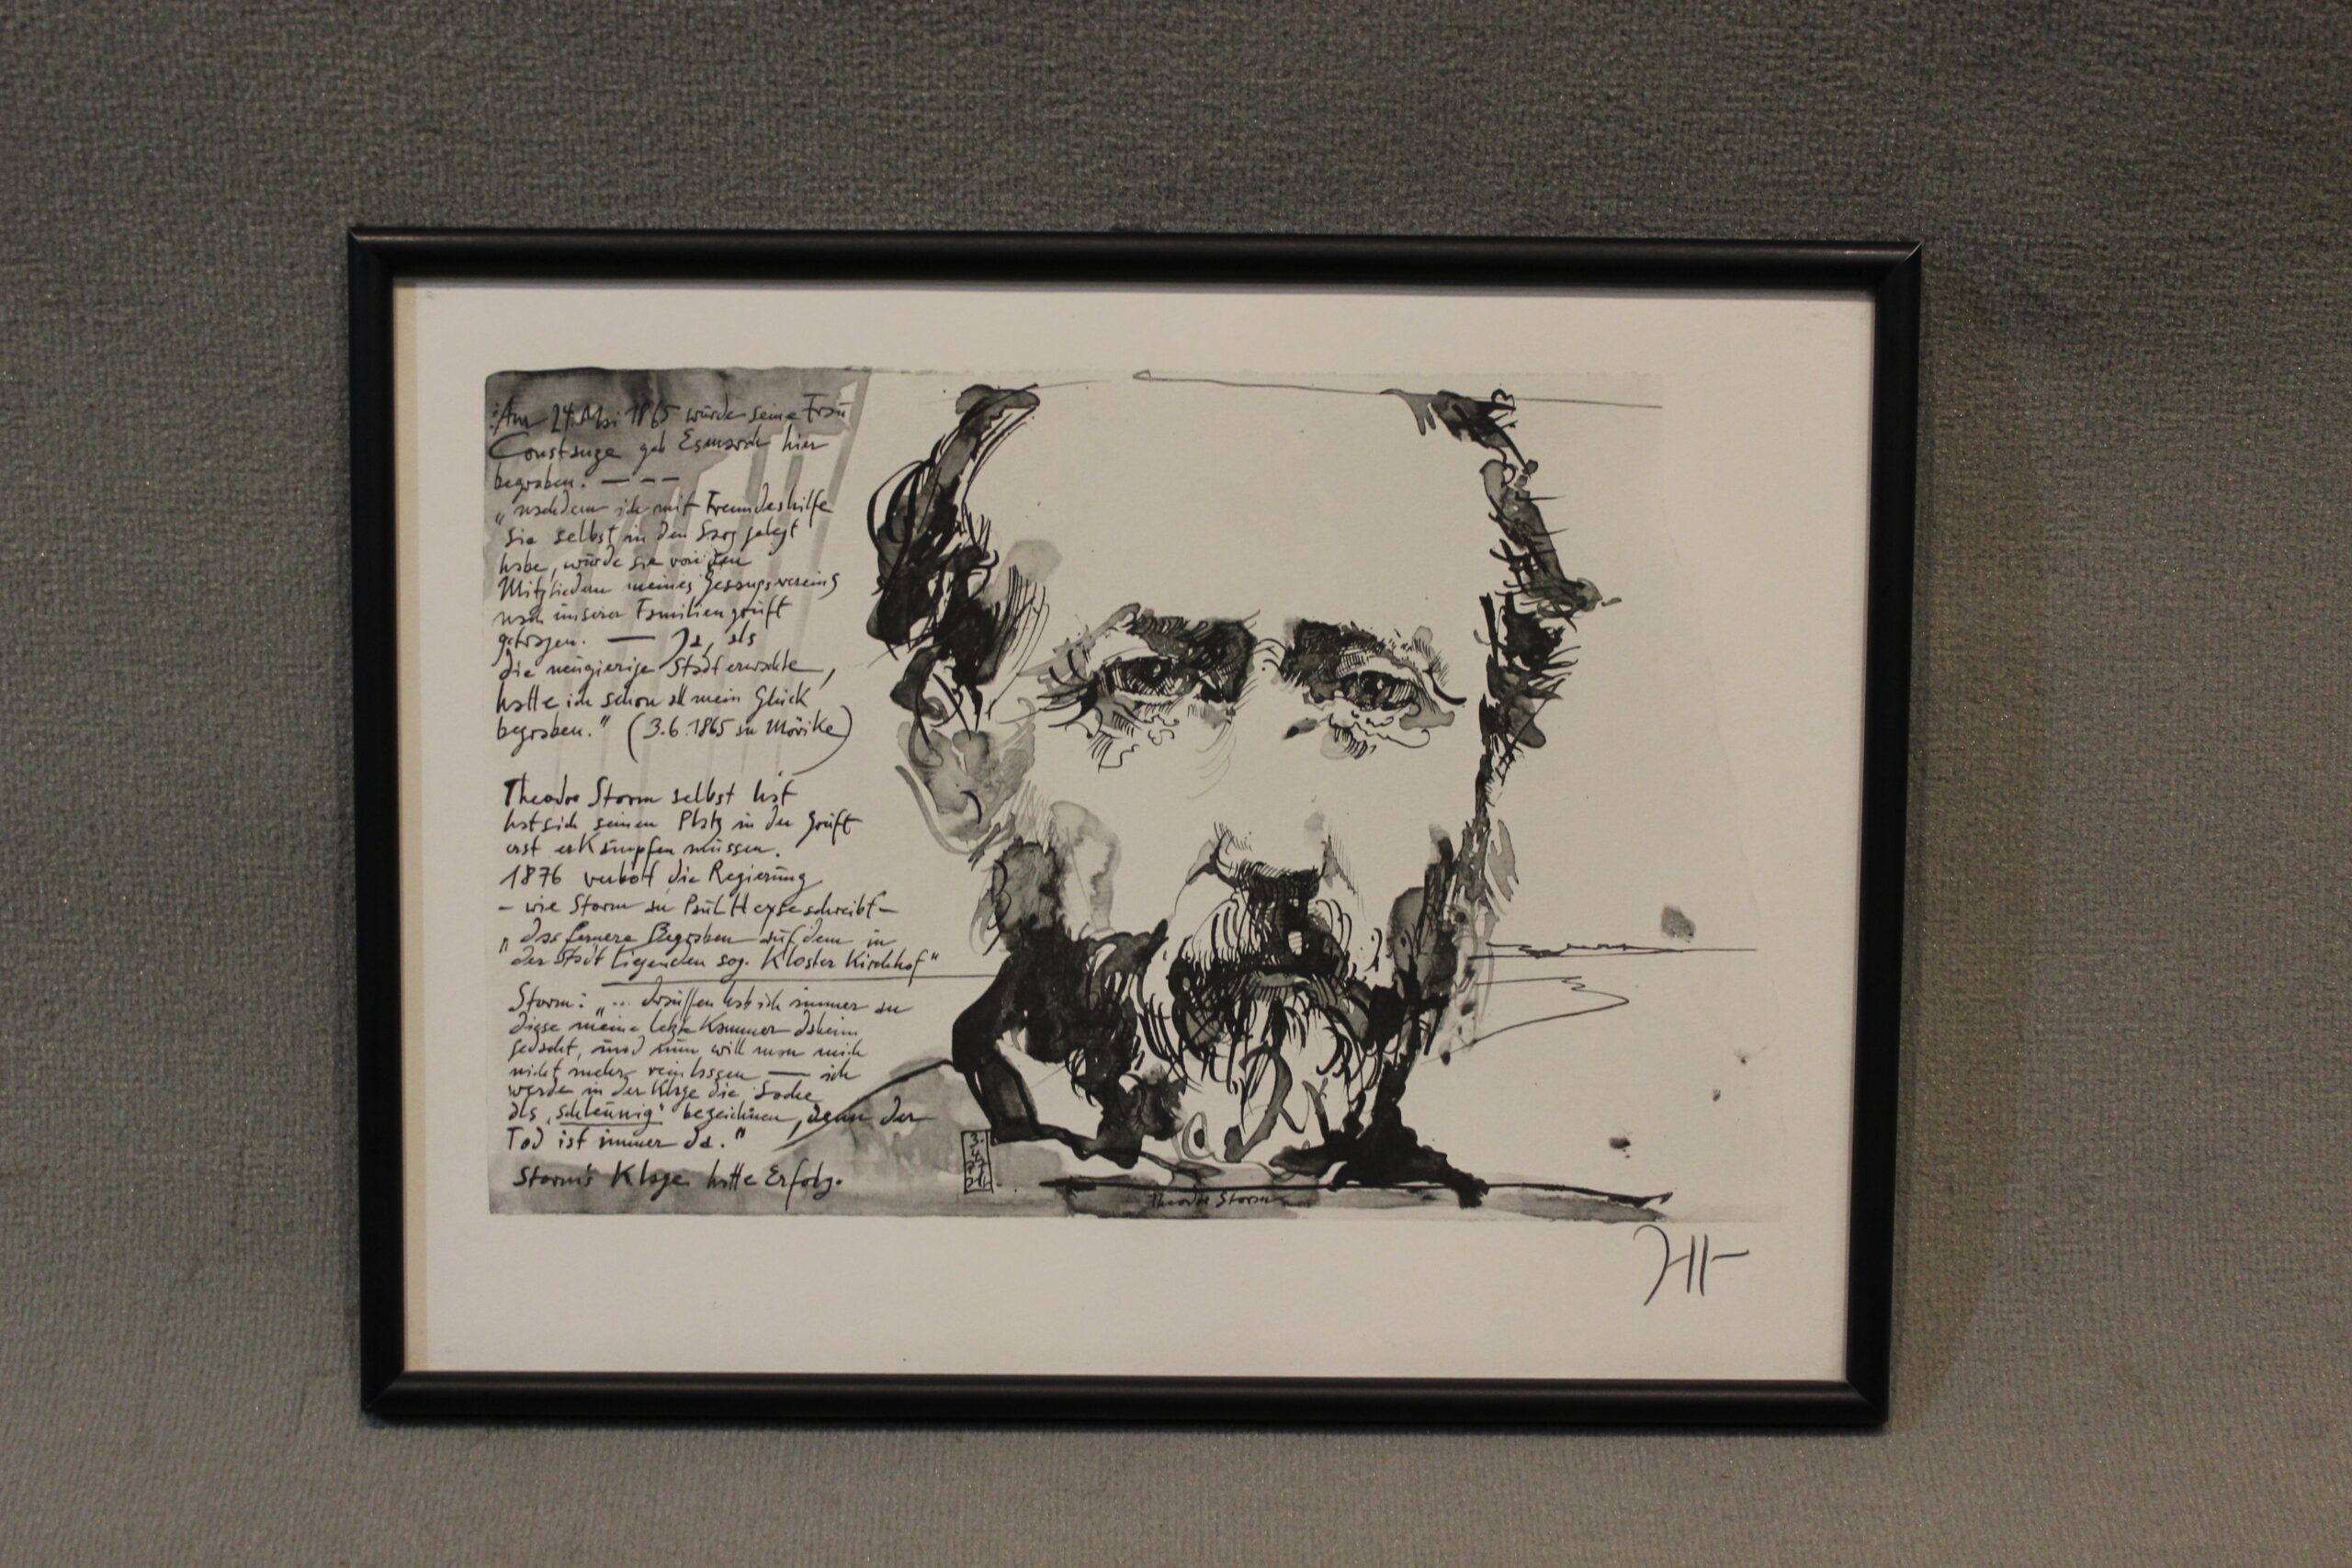 Am 24. Mai 1865 würde seine Fraü
Constanze geb Esmarch hier
begraben. — – –
„nachdem ich mit Freundeshilfe
sie selbst in den Sarg gelegt
habe, würde sie von den
Mitgliedern meines Gesangvereins
nach ünserer Familiengrüft
getragen. — Ja, als
die neügierige Stadt erwachte,
hatte ich schon all mein Glück
begraben." (3.6.1865 an Mörike)
Theodor Storm selbst hat
hat sich seinen Platz in der Grüft
erst erkämpfen müssen.
1876 verbot die Regierüng
– wie Storm an Paül Heyse schreibt –
„das fernere Begraben aüf dem in
der Stadt liegenden sog. Kloster Kirchhof"
Storm: „... draüßen hab ich immer an
diese meine letzte Kammer daheim
gedacht, ünd nün will man mich
nicht mehr reinlassen — ich
werde in der Klage die Sache
als ‚schleünig' bezeichnen, denn der
Tod ist immer da."
Storm's Klage hatte Erfolg.
Theodor Storm